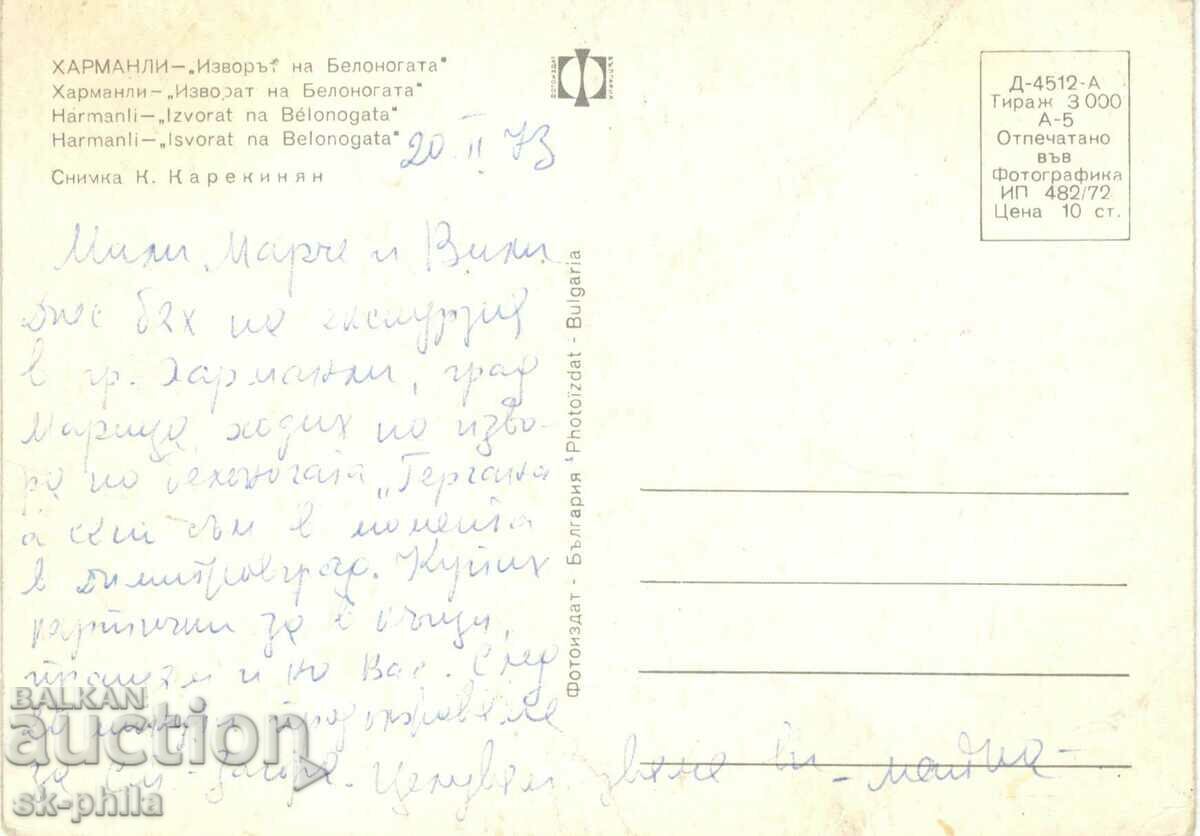 ХАРМАНЛИ—„Изворът на Белоногата"
Харманли—„Изворат на Белоногата"
Harmanli—„Izvorat na Bélonogata"
Harmanli—„Isvorat na Belonogata"
20 II 73
Снимка К. Карекинян
Мили Марче и Вили
Днес бях на екскурзия
в гр. Харманли, град
Марица, ходих на изво-
ра на белоногата „Гергана
а сега съм в момента
в Димитровград. Купих
картички за в къщи,
пращам и на Вас. След
20 минути продължаваме
за Ст. Загора. Целувам ви
- майка -
Фотоиздат - България Photoizdat - Bulgaria
Д-4512-А
Тираж 3 000
А-5
Отпечатано
във
Фотографика
ИП 482/72
Цена 10 ст.
BALKAN
auction
sk-phila